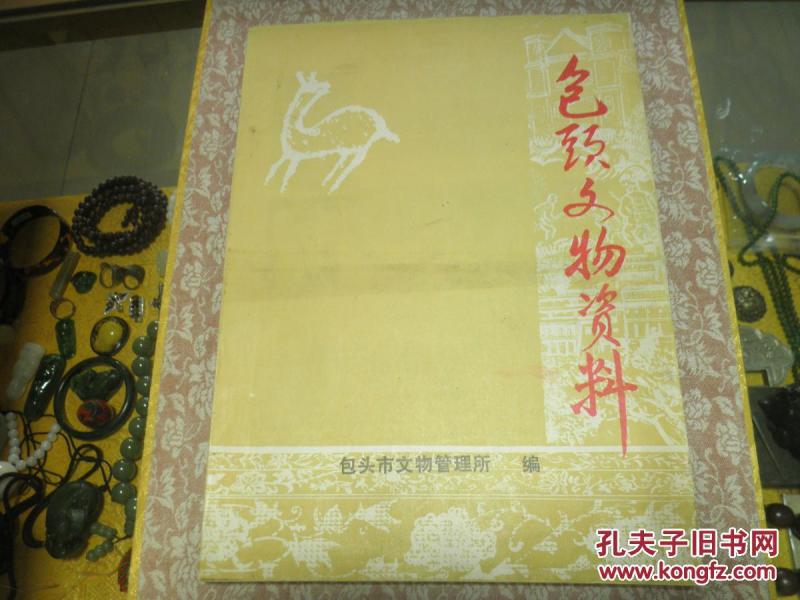 包頭文物资料
包头市文物管理所 编
孔夫子旧书网
www.kongfz.com